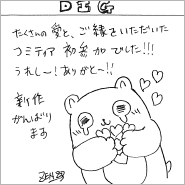 DIG
たくさんの愛と、ご縁をいただいた
コミティア初参加でした!!!
うれしー!ありがとー!!
新作
がんばり
ます